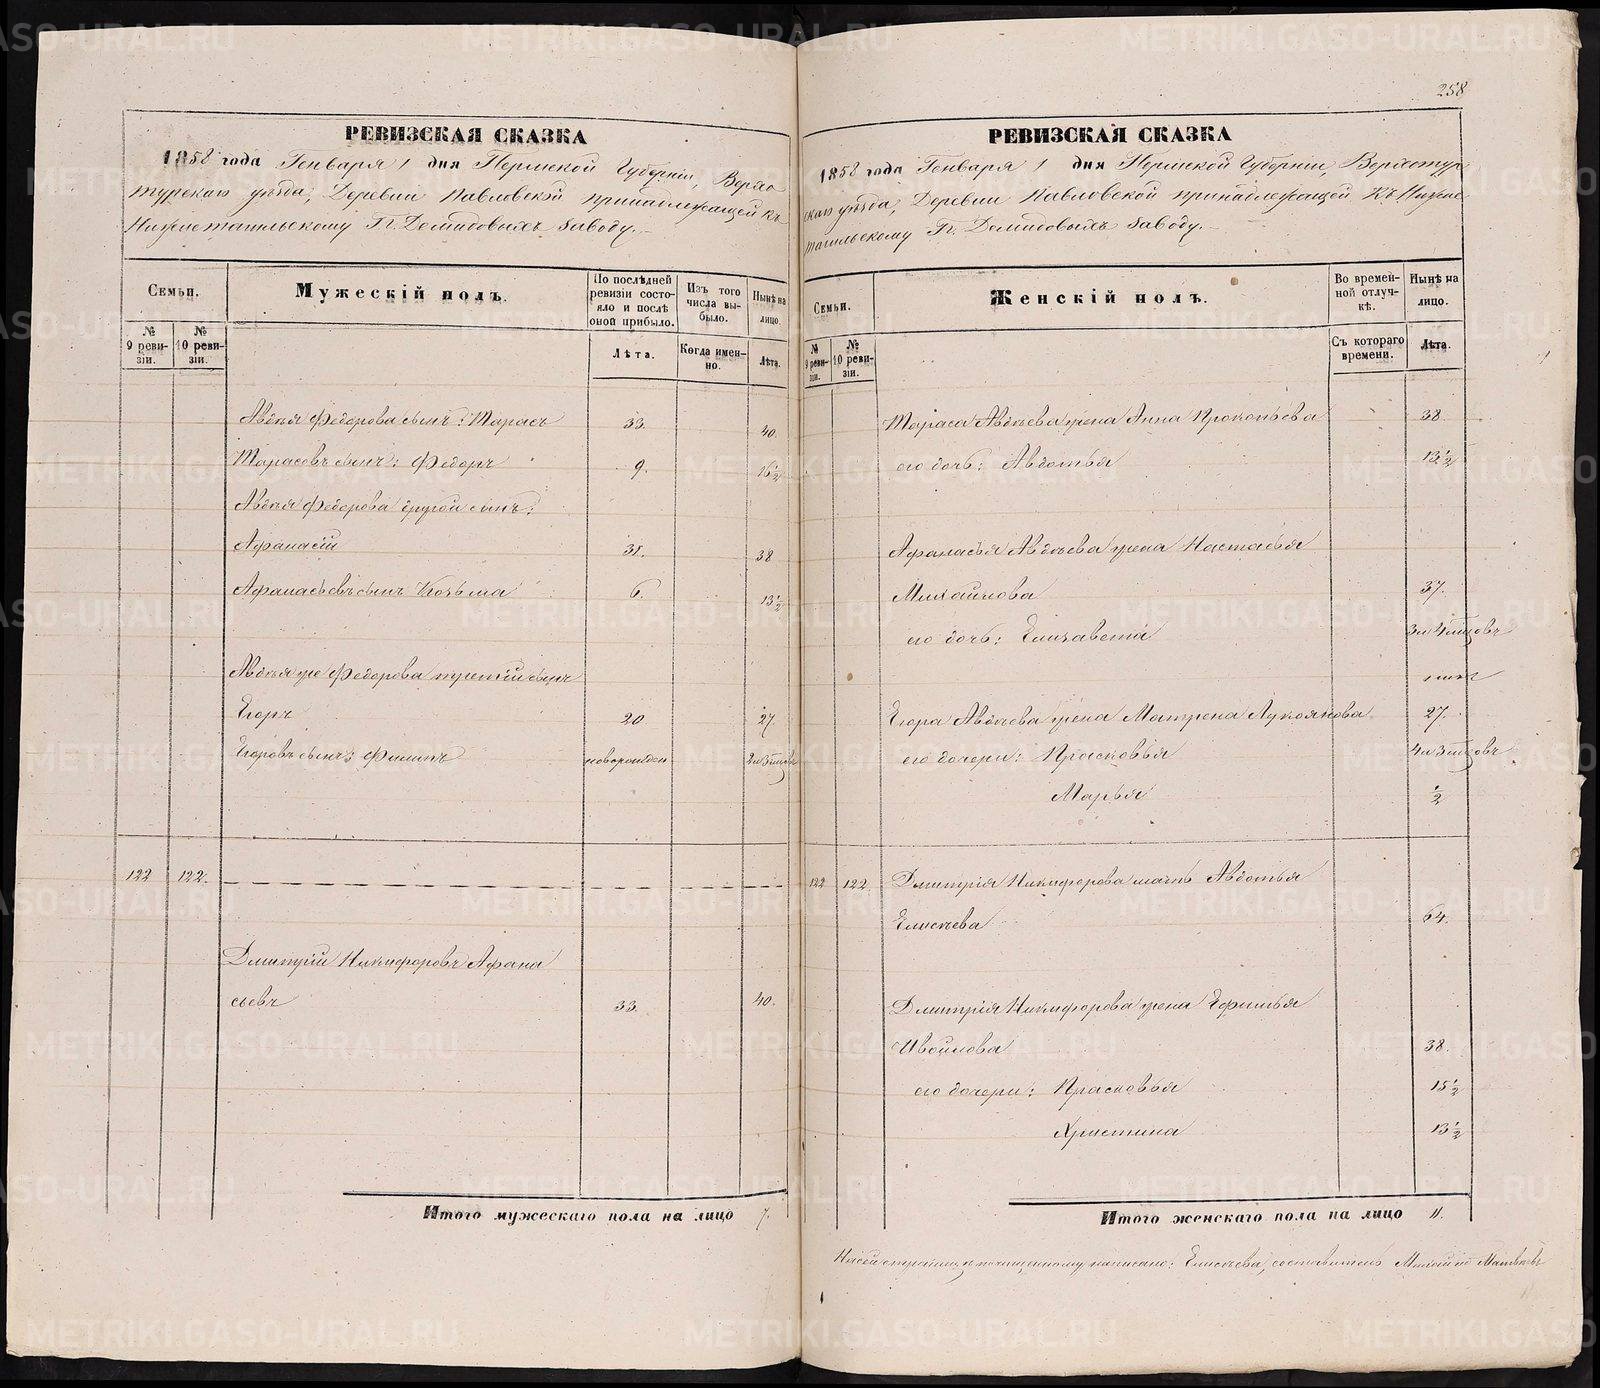 РЕВИЗСКАЯ СКАЗКА
1858 года Генваря 1 дня Пермской Губерніи, Верхо
турскаго уѣзда, Деревни Павловской принадлежащей къ
Нижнетагильскому Гг. Демидовыхъ заводу.
Семьи.
Мужескій полъ.
По послѣдней ревизіи состояло и послѣ оной прибыло.
Изъ того числа выбыло.
Нынѣ на лицо.
№ 9 ревизіи.
№ 10 ревизіи.
Лѣта.
Когда именно.
Лѣта.
Авдѣя Федорова сынъ: Тарасъ 33. 40.
Тарасовъ сынъ: Федоръ 9. 16½
Авдѣя Федорова другой сынъ:
Афанасій 31. 38
Афанасьевъ сынъ Козьма 6. 13½
Авдѣя же Федорова третій сынъ
Егоръ 20 27.
Егоровъ сынъ: Филипъ новорожден 2 и 3 мѣс
122 122.
Дмитрій Никифоровъ Афана
сьевъ 33. 40.
Итого мужескаго пола на лицо 7.
258
РЕВИЗСКАЯ СКАЗКА
1858 года Генваря 1 дня Пермской Губерніи, Верхотур
скаго уѣзда, Деревни Павловской принадлежащей къ Нижне
тагильскому Гг. Демидовыхъ заводу.
Семьи.
Женскій полъ.
Во временной отлучкѣ.
Нынѣ на лицо.
№ 9 ревизіи.
№ 10 ревизіи.
Съ котораго времени.
Лѣта.
Тараса Авдѣева жена Анна Прокопьева 38.
его дочь: Авдотья 13½
Афанасья Авдѣева жена Настасья
Михайлова 37.
его дочь: Елизавета 3 и 4 мѣсцовъ
Егора Авдѣева жена Матрена Лукоянова 27.
его дочери: Прасковья 4 и 3 мѣсцовъ
Марья ½
122 122. Дмитрія Никифорова мать Авдотья
Елисѣева 64.
Дмитрія Никифорова жена Ефимья
Ивойлова 38.
его дочери: Прасковья 15½
Христина 13½
Итого женскаго пола на лицо 11.
На сей страницѣ по чищенному написано: Елисѣева, составитель Матвѣевъ
METRIKI.GASO-URAL.RU